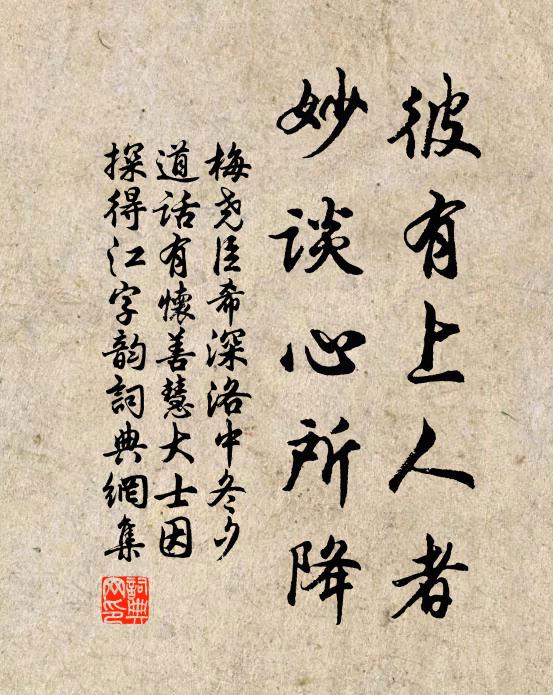 彼有上人者
妙谈心所降
梅尧臣希深洛中冬夕
道话有懷善慧大士因
探得江字韵詞典網集
詞典
网印